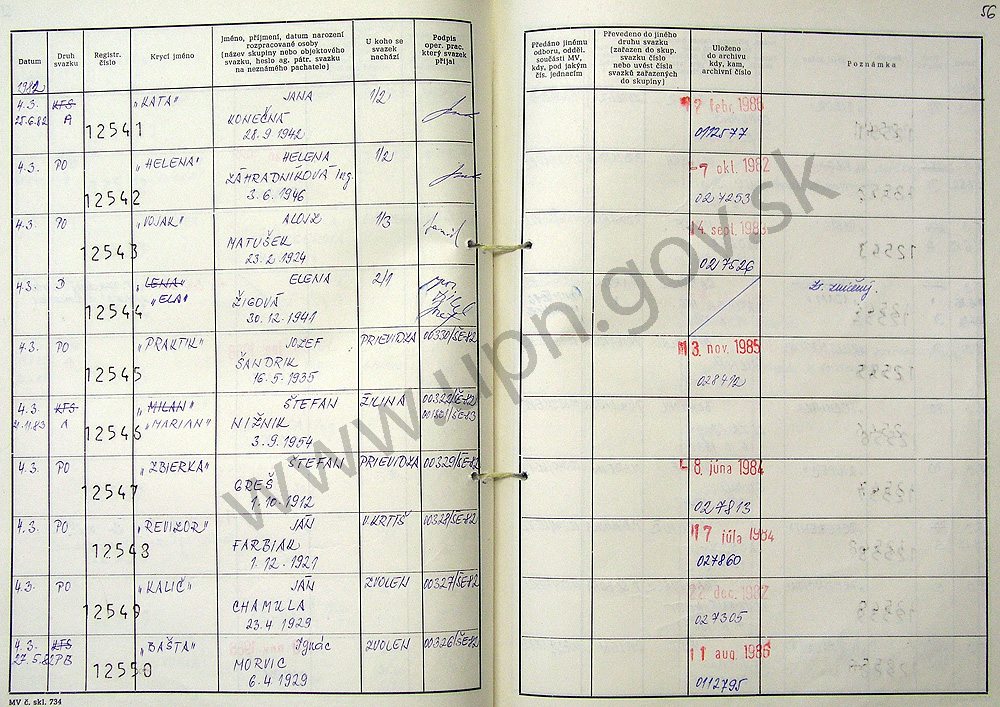 56
Datum
Druh svazku
Registr. číslo
Krycí jméno
Jméno, příjmení, datum narození rozpracované osoby (název skupiny nebo objektového svazku, heslo ag. pátr. svazku na neznámého pachatele)
U koho se svazek nachází
Podpis oper. prac. který svazek přijal
Předáno jinému odboru, odděl. součásti MV, kdy, pod jakým čís. jednacím
Převedeno do jiného druhu svazku (zařazen do skup. svazku číslo nebo uvést čísla svazků zařazených do skupiny)
Uloženo do archivu kdy, kam, archivní číslo
Poznámka
1982
4.3. KFS „KATA" JANA 1/2
25.6.82 A 12541 KONEČNÁ
28.9 1942
febr. 1986
012577
4.3. PO „HELENA" HELENA 1/2
12542 ZÁHRADNIKOVÁ Ing.
3.6 1946
-7 okt. 1982
027253
4.3. PO „VOJAK" ALOJZ 1/3
12543 MATUŠEK
23.2 1924
14 sept. 1983
027526
4.3. D „LENA" ELENA 2/1
„ELA"
12544 ŽIGOVÁ
30.12.1941
zv. zničený.
4.3. PO „PRAKTIK" JOZEF PRIEVIDZA 00330/ŠE-82
12545 ŠANDRIK
16.5.1935
3. nov. 1985
028412
4.3. KFS „MILAN" ŠTEFAN ŽILINA 00322/ŠE-82
A „MARIAN"
12546 NIŽNIK
3.9.1954
4.3. PO „ZBIERKA" ŠTEFAN PRIEVIDZA 00329/ŠE-82
12547 GREŠ
1.10.1912
8. júna 1984
027813
4.3. PO „REVIZOR" JÁN V.KRTÍŠ 00328/ŠE-82
12548 FARBIAK
1.12.1921
17 júla 1984
027860
4.3. PO „KALIČ" JÁN ZVOLEN 00327/ŠE-82
12549 CHAMULA
23.4 1929
22 dec. 1982
027305
4.3. KFS „BAŠTA" Ignác ZVOLEN 00326/ŠE-82
27.5.82 PB 12550 MORVIC
6.4 1929
11 aug. 1986
0112795
MV č. skl. 734
www.upn.gov.sk